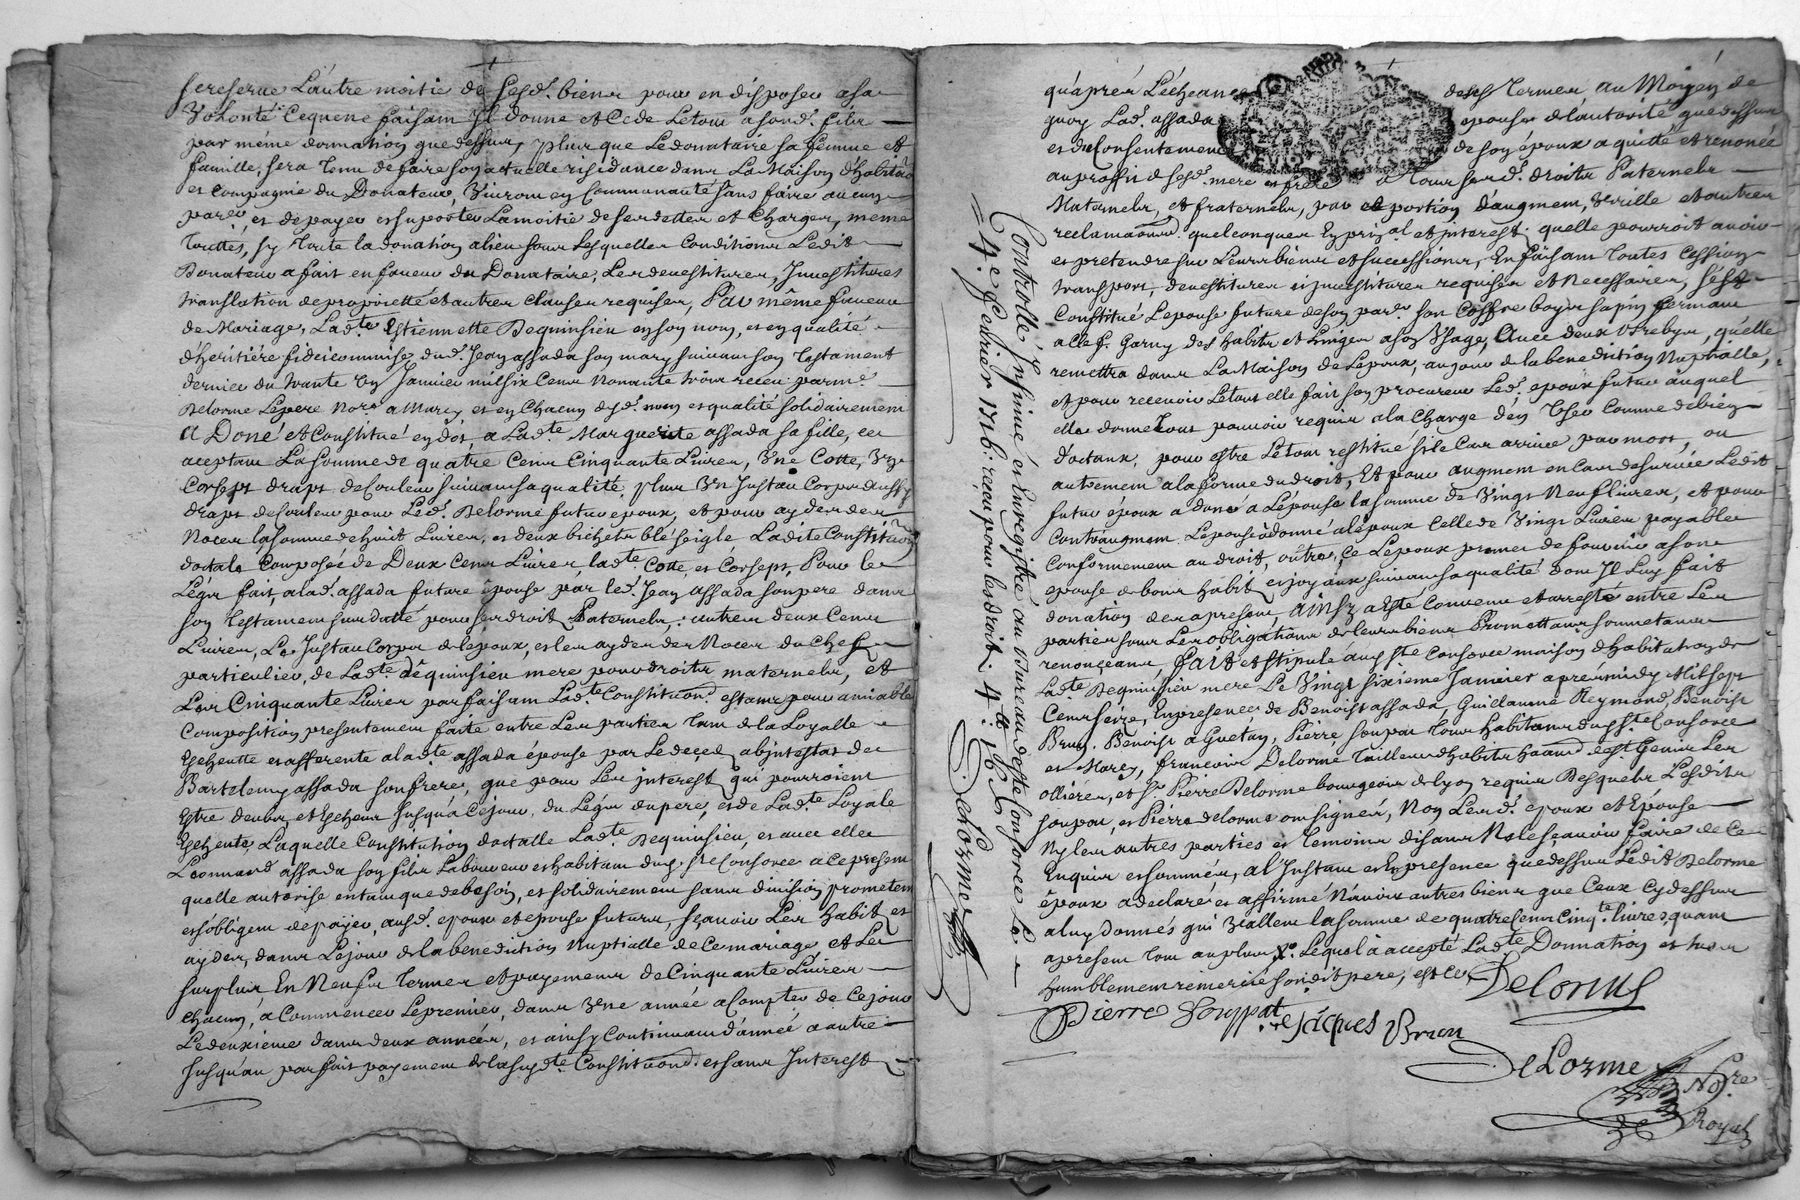 se reserve L'autre moitié de sesd. biens pour en disposer a sa
Volonté Ce que ne faisant Il donne et Cede Le tout a sond. filz
par même donnation que dessus, plus que Le donataire sa femme et
famille, sera tenu de faire son actuelle residance dans La Maison d'habitaon
et Compagnie du Donateur, Vivront en Communauté sans faire aucun
et de payer et suporter La moitié de ses dettes et Charges, meme
sy toute la donation a lieu sous Lesquelles Conditions Ledit
Donateur a fait en faveur du Donataire, Les devestitures, Investitures
translation de proprietté et autres clauses requises, Par même faveur
de Mariage, Lad.te Estiennette Dequinsieu en son nom, et en qualité
d'heritiére fideicommise dud. Jean assada son mary suivant son testament
dernier du trante un Janvier mil six Cens Nonante trois receu par me.
Delorme Lepere Nore. a Marcy et en chacun desd. nom et qualité solidairement
A Doné et Constitué en dot, a Lad.te Marguerite assada sa fille, ce
aceptant La somme de quatre Cens Cinquante Livres, Une Cotte, Un
Corsept draps de Couleur suivant sa qualité, plus Un Justau Corps aussy
draps de Couleur pour Led. Delorme futur epoux, et pour ayder des
Noces la somme de huit Livres, et deux bichets blé seigle La dite Constitution
dotale Composée de Deux Cens Livres, lad.te Cotte, et Corsept, Pour le
Légat fait, a lad. assada future épouse par led. Jean assada son pere dans
son testament susdatté pour ses droits Paternels; autres deux Cens
Livres, Le Justau Corps de lepoux, et les ayder des Noces du Chef
particulier, de Lad.te dequinsieu mere pour droits maternels, et
Les Cinquante Livres parfaisant Lad.te Constitution estant pour amiable
Composition presentement faite entre Les parties tant de la Loyalle
Escheutte et afferente a lad.te assada épouse par Le deced abintestat de
Bartelemy assada son frere, que pour Les interest qui pourroient
Estre deubs et Escheus Jusqu'a Cejour, du Légat du pere, et de Lad.te Loyale
Escheute, Laquelle Constitution dotalle Lad.te Dequinsieu, et avec elle
Leonnard assada son filz Laboureur et habitant dud. Ste Consorce a ce present
quelle autorise en tant que de besoin, et solidairement sans division prometent
et s'obligent de payer, ausd. epoux et epouse futurs, sçavoir Les habits et
ayder, dans Le jour de la benediction Nuptialle de Ce mariage et Le
surplus En Neufs termes et payements de Cinquante Livres
chacun, a Commencer Le premier, dans Une année a Compter de Ce jour
Le deuxieme dans deux années, et ainsy Continuant d'année a autre
Jusqu'au parfait payement de la susd.te Constitution et sans Interest
qu'aprés L'écheance desd. termes au Moyen de
quoy Lad. assada epouse de l'autorité que dessus
et du Consentement de son époux a quitté et renoncé
au proffit desd. mere et frere a tous sesd. droits Paternels
Maternels, et fraternels, part et portion d'augment, Verille et autres
reclamations quelconques En pripal et interest quelle pourroit avoir
et pretendre sur Leurs biens et successions, En faisant toutes Cession
transport, devestitures et investitures requises et Necessaires, s'est
Constitué L'epouse future de son part. son Coffre boys sapin fermant
a Clef. Garny des habits et Linges a son Usage, Avec deux brebys, qu'elle
remettra dans La Maison de Lepoux, au jour de la benediction Nuptialle,
et pour recevoir Le tout elle fait son procureur Led. epoux futur auquel
elle donne tout pouvoir requis a la Charge d'en User Comme de bien
d'otaux, pour estre Le tout restitué si le Cas arrive par mort, ou
autrement a la forme du droit, Et pour augment en Cas de survie Ledit
futur époux a doné a L'épouse la somme de Vingt Neuf livres, et pour
Contraugment L'epouse a donné a lépoux Celle de Vingt Livres payables
Conformement au droit, outre, Ce Lepoux promet de fournir a son
epouse de bons habit et joyaux suivant sa qualité dont Il Luy fait
donation des a present, Ainsy a Esté Convenu et arresté entre Les
parties sous Les obligations de leurs biens Promettant soumettant
renonçeant, fait et stipulé aud. Ste Consorce maison d'habitation de
Lad.te Dequinsieu mere Le Vingt sixieme Janvier apres midy Mil sept
Cens seize, En presence de Benoist assada, Guillaume Reymond, Benoist
Brun, Benoist a Guétan, Pierre soupat tous habitants dud. Ste Consorce
et Marcy, francois Delorme tailleur d'habits haant de St Genis Les
ollieres, et Sr. Pierre Delorme bourgeois de lyon requis Desquels Lesdits
soupat, et Pierre delorme ont signés, Non Lesd. epoux et Epouse
Ny les autres parties et temoins disants Ne le sçavoir faire de Ce
Enquis et sommés, a l'Instant et En presence que dessus Ledit Delorme
époux a declaré et affirmé N'avoir autres biens que Ceux Cy dessus
a luy donnés qui Vallent la somme de quatre cens Cinq.te livres, quant
a present tout au plus. Lequel a accepté Lad.te Donnation et tres
humblement remercié son dit pere,
Delorme
Pierre Souppat
Jacques Brun
DeLorme
Nore
Royal
Controllé Insinué et Enregistré au Bureau de Ste Consorce Le
4.e Feuvrier 1716. receu pour les droits. 4.tt 16
Delorme